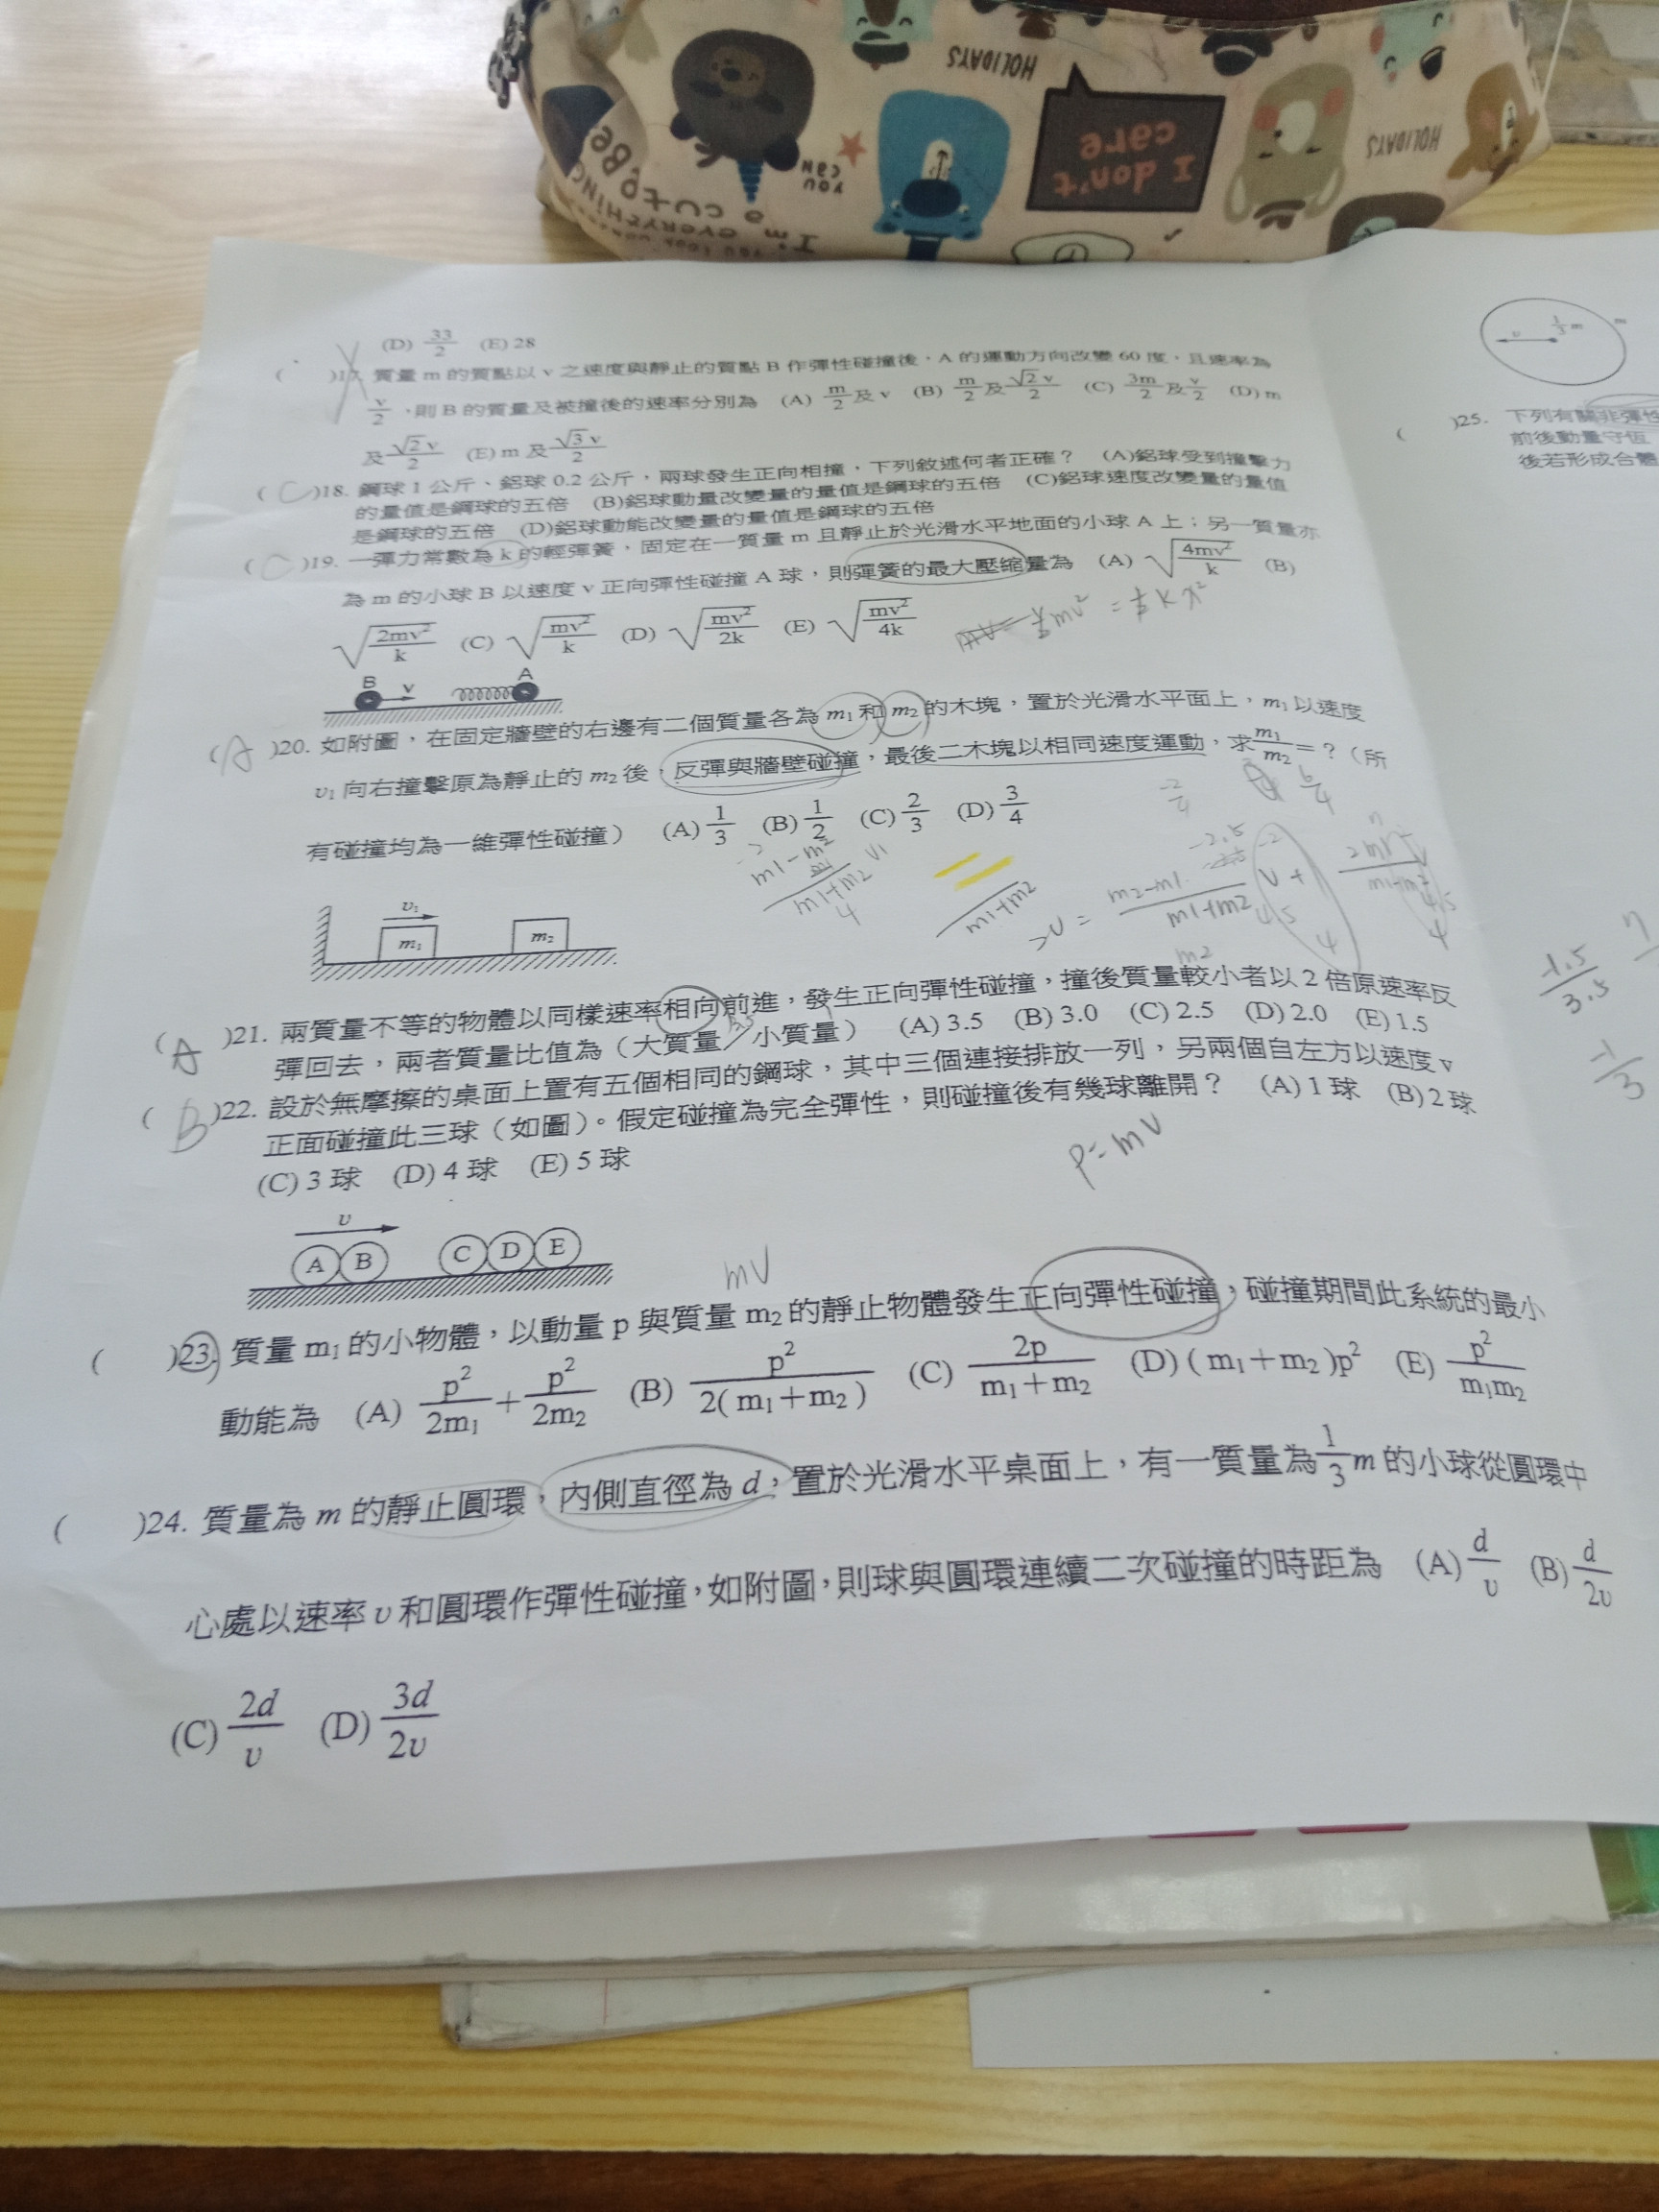 HOLIDAYS
YOU CAN
I don't care
HOLIDAYS
(D) 33/2 (E) 28
( )17. 質量 m 的質點以 v 之速度與靜止的質點 B 作彈性碰撞後,A 的運動方向改變 60 度,且速率為
v/2,則 B 的質量及被撞後的速率分別為 (A) m/2 及 v (B) m/2 及 √2v/2 (C) 3m/2 及 v/2 (D) m
及 √2v/2 (E) m 及 √3v/2
( C )18. 鋼球 1 公斤、鋁球 0.2 公斤,兩球發生正向相撞,下列敘述何者正確? (A)鋁球受到撞擊力
的量值是鋼球的五倍 (B)鋁球動量改變量的量值是鋼球的五倍 (C)鋁球速度改變量的量值
是鋼球的五倍 (D)鋁球動能改變量的量值是鋼球的五倍
( C )19. 一彈力常數為 k 的輕彈簧,固定在一質量 m 且靜止於光滑水平地面的小球 A 上;另一質量亦
為 m 的小球 B 以速度 v 正向彈性碰撞 A 球,則彈簧的最大壓縮量為 (A) √(4mv²/k) (B)
√(2mv²/k) (C) √(mv²/k) (D) √(mv²/2k) (E) √(mv²/4k)
½mv² = ½kx²
B v A
( A )20. 如附圖,在固定牆壁的右邊有二個質量各為 m₁ 和 m₂ 的木塊,置於光滑水平面上,m₁ 以速度
υ₁ 向右撞擊原為靜止的 m₂ 後,反彈與牆壁碰撞,最後二木塊以相同速度運動,求 m₁/m₂ =?(所
有碰撞均為一維彈性碰撞) (A) 1/3 (B) 1/2 (C) 2/3 (D) 3/4
υ₁
m₁ m₂
( A )21. 兩質量不等的物體以同樣速率相向前進,發生正向彈性碰撞,撞後質量較小者以 2 倍原速率反
彈回去,兩者質量比值為(大質量/小質量) (A) 3.5 (B) 3.0 (C) 2.5 (D) 2.0 (E) 1.5
( B )22. 設於無摩擦的桌面上置有五個相同的鋼球,其中三個連接排放一列,另兩個自左方以速度 v
正面碰撞此三球(如圖)。假定碰撞為完全彈性,則碰撞後有幾球離開? (A) 1 球 (B) 2 球
(C) 3 球 (D) 4 球 (E) 5 球
P=mV
υ
A B C D E
mV
( )23. 質量 m₁ 的小物體,以動量 p 與質量 m₂ 的靜止物體發生正向彈性碰撞,碰撞期間此系統的最小
動能為 (A) p²/2m₁ + p²/2m₂ (B) p²/2(m₁+m₂) (C) 2p/m₁+m₂ (D) (m₁+m₂)p² (E) p²/m₁m₂
( )24. 質量為 m 的靜止圓環,內側直徑為 d,置於光滑水平桌面上,有一質量為 1/3 m 的小球從圓環中
心處以速率 υ 和圓環作彈性碰撞,如附圖,則球與圓環連續二次碰撞的時距為 (A) d/υ (B) d/2υ
(C) 2d/υ (D) 3d/2υ
υ 1/3 m m
( )25. 下列有關非彈性
前後動量守恆
後若形成合體